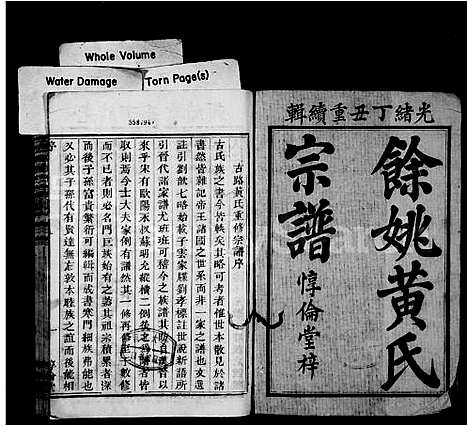 Whole Volume
Water Damage
Torn Page(s)
光緒丁丑重續輯
餘姚黃氏
宗譜
惇倫堂梓
古路黃氏重修宗譜序
古氏族之書今皆軼矣其略可考者惟世本散見於諸
書然皆雜記帝王諸國之世系而非一家之譜也文選
註引劉歆七略始載子雲家牒劉孝標註世說新語所
引晉代諸家譜尤班班可稽今之族譜其昉自
來乎宋有歐陽永叔蘇明允縱橫二例英之為譜者皆
取則焉今士大夫家例有譜然其一修再修至十數修
而不已者則必名門巨族始有之蓋其祖宗積累者厚
而後子孫富貴繁衍可編輯而成書寒門細族弗能也
又必其子孫代有賢達無忘敦本睦族之誼而後能相